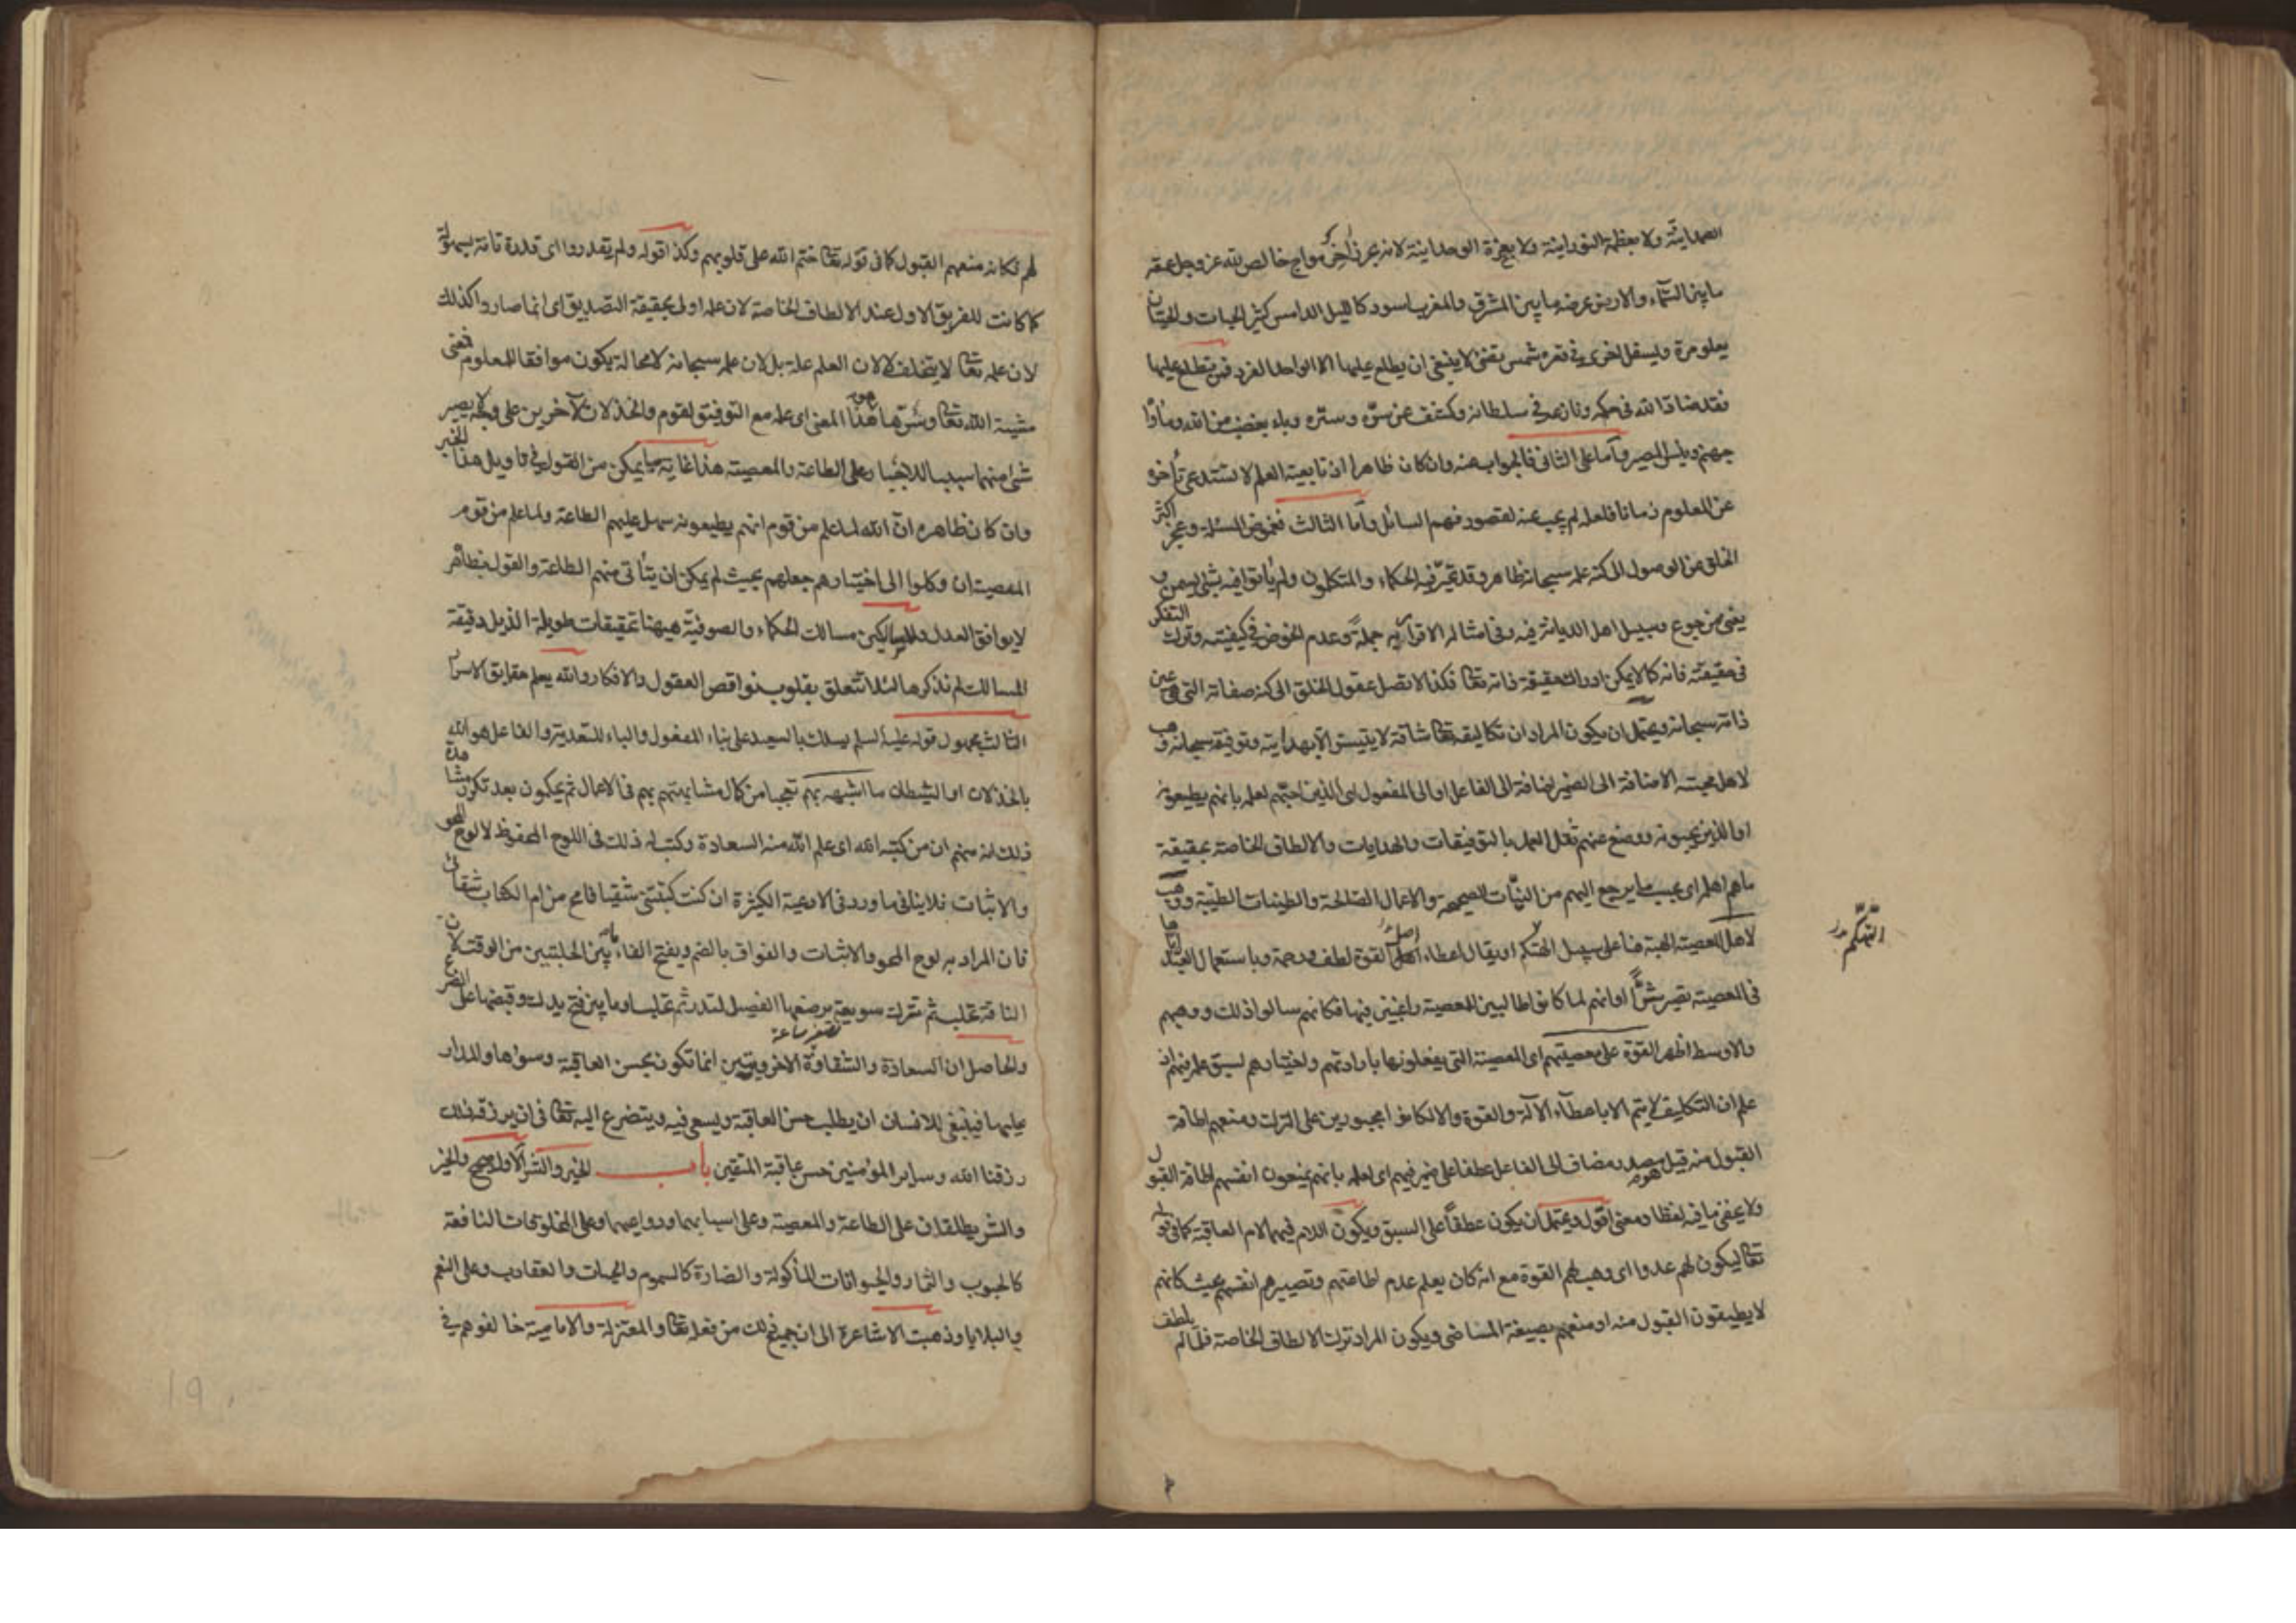 الصمدانية ولا بعظمة النورانية ولا بعزة الوحدانية لانه بحر زاخر مواج خالص لله عز وجل عمقه
ما بين السماء والارض عرضه ما بين المشرق والمغرب اسود كالليل الدامس كثير الحيات والحيتان
يعلو مرة ويسفل اخرى في قعره شمس تضئ لا ينبغي ان يطلع عليها الا الواحد الفرد فمن تطلع عليها
فقد ضاد الله في حكمه ونازعه في سلطانه وكشف عن سره وستره وباء بغضب من الله ومأواه
جهنم وبئس المصير واما على الثاني فالجواب عنه وان كان ظاهرا اذ تابعية العلم لا تستدعي تأخره
عن المعلوم زمانا فلعله لم يجب عنه لقصور فهم السائل واما الثالث فغموض المسئلة وعجز اكثر
الخلق عن الوصول الى كنه علمه سبحانه ظاهر وقد تحير فيه الحكماء والمتكلمون ولم يأتوا فيه بشئ يسمن و
يغنى من جوع وسبيل اهل الديانة فيه وفي امثاله الاقرار به جملة وعدم الخوض في كيفيته وترك التفكر
في حقيقته فانه كما لا يمكن ادراك حقيقة ذاته تعا فكذا لا تصل عقول الخلق الى كنه صفاته التي هي عين
ذاته سبحانه ويحتمل ان يكون المراد ان تكاليفه تعا شاقة لا يتيسر الا بهدايته وتوفيقه سبحانه وهب
لاهل محبته الاضافة الى الضمير اضافة الى الفاعل او الى المفعول اى الذين احبهم لعلمه بانهم يطيعونه
او الذين يحبونه ووضع عنهم ثقل العمل بالتوفيقات والهدايات والالطاف الخاصة بحقيقة
ما هم اهله اى بحسب ما يرجع اليهم من النيات الصحيحة والاعمال الصالحة والطينات الطيبة ووهب
لاهل المعصية الهبة هنا على سبيل التهكم او يقال اعطاء اصل القوة لطف ورحمة وباستعمال العبد لها
التهكم
في المعصية تصير شرا او انهم لما كانوا طالبين للمعصية راغبين فيها فكانهم سالوا ذلك ووهبهم
والاوسط اظهر القوة على معصيتهم اى المعصية التي يفعلونها بارادتهم واختيارهم لسبق علمه فيهم اذ
علم ان التكليف لا يتم الا باعطاء الآلة والقوة والا لكانوا مجبورين على الترك ومنعهم اطاقة
القبول منه قيل هو مصدر مضاف الى الفاعل عطفا على ضمير فيهم اى لعلمه بانهم يمنعون انفسهم اطاقة القبول
ولا يخفى ما فيه لفظا ومعنى اقول ويحتمل ان يكون عطفا على السبق ويكون اللام فيهما لام العاقبة كما في قوله
تعا ليكون لهم عدوا اى وهب لهم القوة مع انه كان يعلم عدم اطاعتهم وتصييرهم انفسهم بحيث كانهم
لا يطيقون القبول منه او منعهم بصيغة الماضى ويكون المراد ترك الالطاف الخاصة فلما لم يلطف
لهم فكانه منعهم القبول كما في قوله تعا ختم الله على قلوبهم وكذا قوله ولم يقدروا اى قدرة تامة بسهولة
كما كانت للفريق الاول عند الالطاف الخاصة لان علمه اولى بحقيقة التصديق اى انما صاروا كذلك
لان علمه تعا لا يتخلف لا لان العلم علة بل لان علمه سبحانه لا محالة يكون موافقا للمعلوم فمعنى
مشية الله تعا وسرها هو هذا المعنى اى علمه مع التوفيق لقوم والخذلان لآخرين على وجه لا يصير
شئ منهما سببا للاجبار على الطاعة والمعصية هذا غاية ما يمكن من القول في تاويل هذا الخبر
وان كان ظاهره ان الله لما علم من قوم انهم يطيعونه سهل عليهم الطاعة ولما علم من قوم
المعصية ان وكلوا الى اختيارهم جعلهم بحيث لم يمكن ان يتأتى منهم الطاعة والقول بظاهره
لا يوافق العدل وللسالكين مسالك الحكماء والصوفية هيهنا تحقيقات طويلة الذيل دقيقة
المسالك لم نذكرها لئلا تتعلق بقلوب نواقص العقول والافكار والله يعلم حقايق الاسرار
الثالث مجهول قوله عليه السلم يسلك بالسعيد على بناء المفعول والباء للتعدية والفاعل هو الله
بالخذلان او الشيطان ما اشبهه بهم تعجبا من كمال مشابهتهم بهم في الاعمال ثم يحكمون بعد تكرر مشاهدة
ذلك انه منهم ان من كتبه الله اى علم الله منه السعادة وكتب له ذلك في اللوح المحفوظ لا لوح المحو
والاثبات فلا ينافي ما ورد في الادعية الكثيرة ان كنت كتبتني شقيا فامح من ام الكتاب شقائى
فان المراد به لوح المحو والاثبات والفواق بالضم وبفتح الفاء ما بين الحلبتين من الوقت لان
الناقة تحلب ثم تترك سويعة يرضعها الفصيل لتدر ثم تحلب او ما بين فتح يدك وقبضها على الضرع
تصغير ساعة
والحاصل ان السعادة والشقاوة الاخرويتين انما تكون بحسن العاقبة وسوئها والمدار
عليهما فينبغي للانسان ان يطلب حسن العاقبة ويسعى فيه ويتضرع اليه تعا في ان يرزقه ذلك
رزقنا الله وساير المؤمنين حسن عاقبة المتقين باب الخير والشر الاول صحيح والخير
والشر يطلقان على الطاعة والمعصية وعلى اسبابهما ودواعيهما وعلى المخلوقات النافعة
كالحبوب والثمار والحيوانات المأكولة والضارة كالسموم والحيات والعقارب وعلى النعم
والبلايا وذهبت الاشاعرة الى ان جميع ذلك من فعله تعا والمعتزلة والامامية خالفوهم في
19